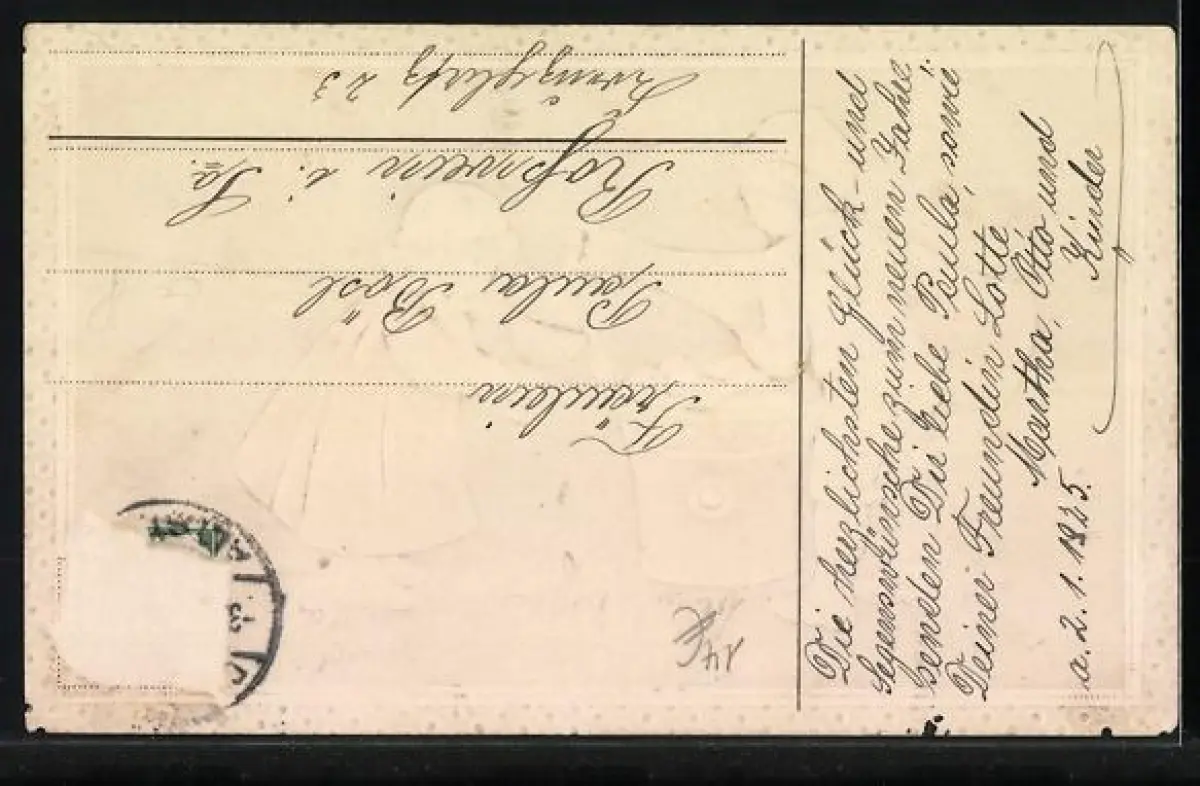 Die herzlichsten Glück- und
Segenswünsche zum neuen Jahre
senden Dir liebe Paula, sowie
Deiner Freundin Lotte
Martha, Otto und
Kinder
a. 2. 1. 1925.
Fräulein
Paula Bösl
Roßwein i. Sa.
23